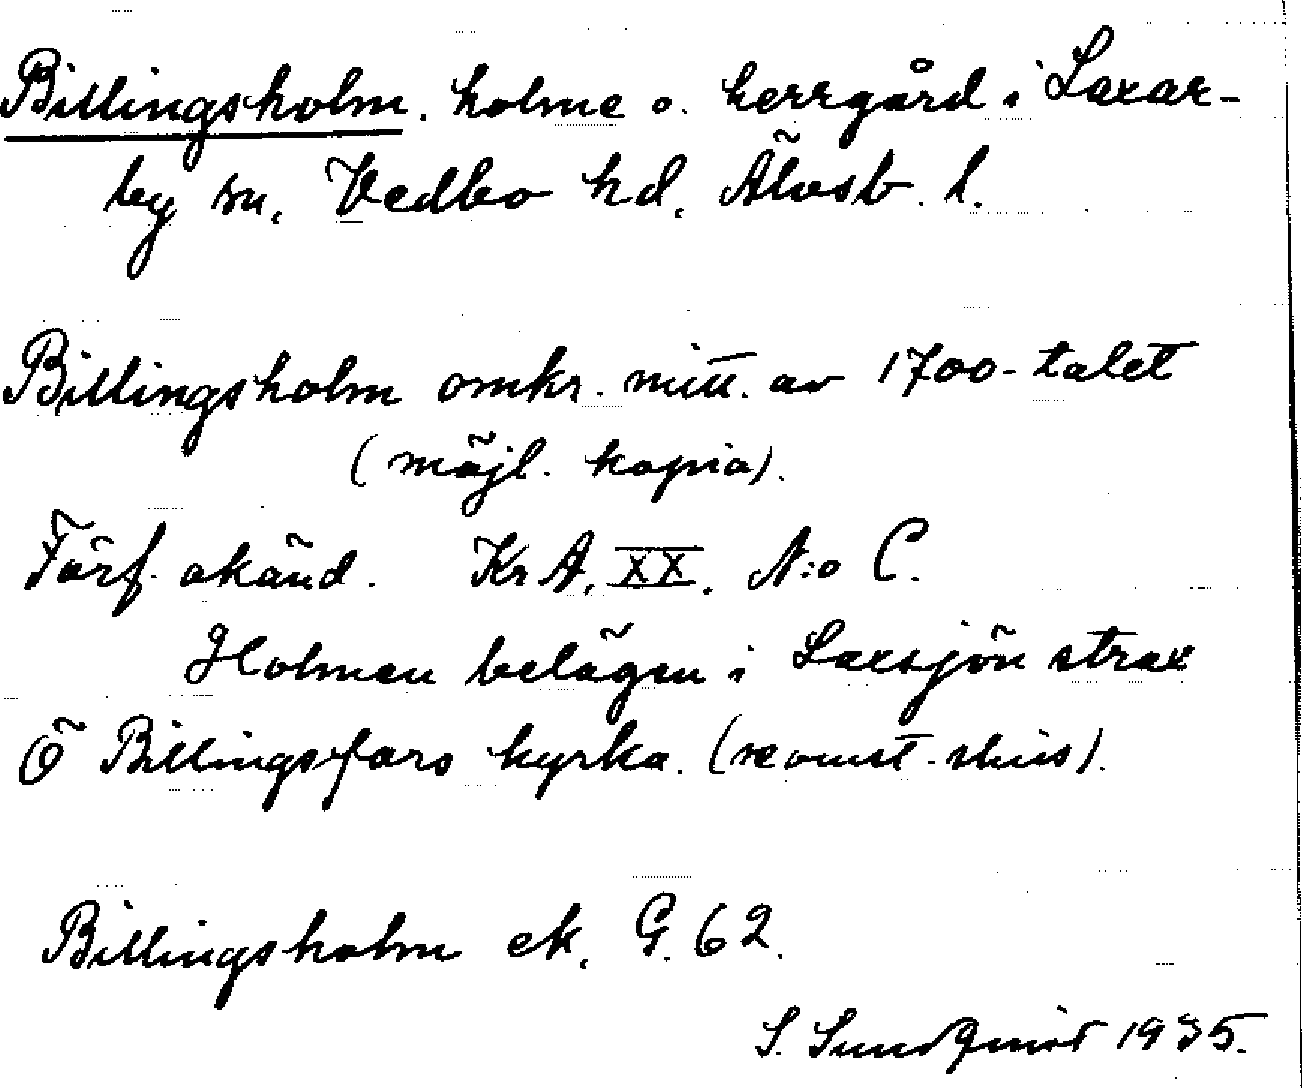 Billingsholm. holme o. herrgård i Laxar-
by sn. Vedbo hd. Älvsb. l.
Billingsholm omkr. mitt. av 1700-talet
(möjl. kopia).
Förf. okänd. Kr A. XX. N:o C.
Holmen belägen i Laxsjön strax
Ö Billingsfors kyrka.
Billingsholm ek. G. 62.
S. Sundqvist 1935.